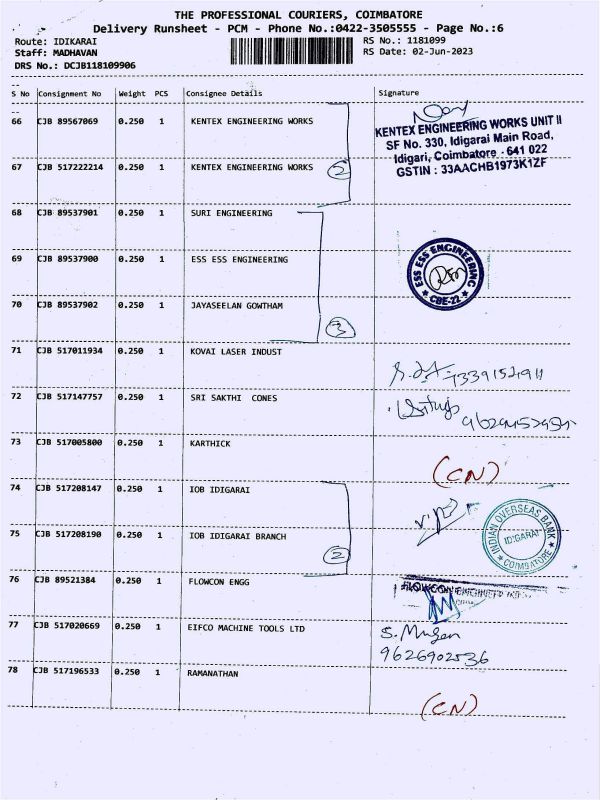 THE PROFESSIONAL COURIERS, COIMBATORE
Delivery Runsheet - PCM - Phone No.:0422-3505555 - Page No.:6
Route: IDIKARAI RS No.: 1181099
Staff: MADHAVAN RS Date: 02-Jun-2023
DRS No.: DCJB118109906
S No Consignment No Weight PCS Consignee Details Signature
66 CJB 89567069 0.250 1 KENTEX ENGINEERING WORKS
KENTEX ENGINEERING WORKS UNIT II
SF No. 330, Idigarai Main Road,
Idigari, Coimbatore - 641 022
GSTIN : 33AACHB1973K1ZF
67 CJB 517222214 0.250 1 KENTEX ENGINEERING WORKS 2
68 CJB 89537901 0.250 1 SURI ENGINEERING
69 CJB 89537900 0.250 1 ESS ESS ENGINEERING
ESS ESS ENGINEERING
CBE-22
70 CJB 89537902 0.250 1 JAYASEELAN GOWTHAM 3
71 CJB 517011934 0.250 1 KOVAI LASER INDUST
72 CJB 517147757 0.250 1 SRI SAKTHI CONES
73 CJB 517005800 0.250 1 KARTHICK (CN)
74 CJB 517208147 0.250 1 IOB IDIGARAI
INDIAN OVERSEAS BANK
IDIGARAI
COIMBATORE
75 CJB 517208190 0.250 1 IOB IDIGARAI BRANCH 2
76 CJB 89521384 0.250 1 FLOWCON ENGG
77 CJB 517020669 0.250 1 EIFCO MACHINE TOOLS LTD S. Mugan
9626902536
78 CJB 517196533 0.250 1 RAMANATHAN (CN)